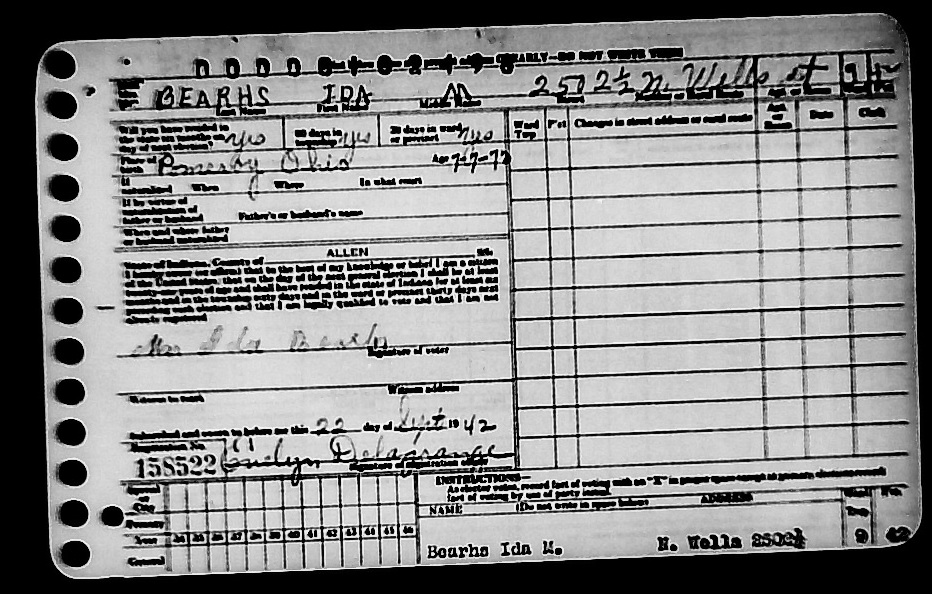 CLEARLY—DO NOT WRITE THESE
BEARHS IDA M 2502½ N. Wells st 9 42
Last Name First Name Middle Name Street Number or Rural Route
Will you have resided in the state six months on day of next election? yes 60 days in township yes 30 days in ward or precinct yes
Ward Twp P'ct Changes in street address or rural route Apt. or Room Date Clerk
Place of birth Pomeroy Ohio Age 7-7-72
If naturalized When Where In what court
If by virtue of naturalization of father or husband Father's or husband's name
When and where father or husband naturalized
State of Indiana, County of ALLEN SS.
I hereby swear (or affirm) that to the best of my knowledge or belief I am a citizen
of the United States, that on the day of the next general election I shall be at least
twenty-one years of age and shall have resided in the state of Indiana for at least six
months and in the township sixty days and in the ward or precinct thirty days next
preceding such election and that I am legally qualified to vote and that I am not
already registered
Mrs Ida Bearhs
Signature of voter
Witness to mark Witness address
Subscribed and sworn to before me this 22 day of Sept 19 42
Registration No.
158522 Evelyn Delagrange
Signature of registration officer
INSTRUCTIONS—
As elector votes, record fact of voting with an "X" in proper space except at primary, elections record
fact of voting by use of party initial.
NAME (Do not write in space below) ADDRESS Ward Twp. Pct.
City
Primary
Year 34 35 36 37 38 39 40 41 42 43 44 45 46
General
Bearhs Ida M. N. Wells 2502½ 9 42